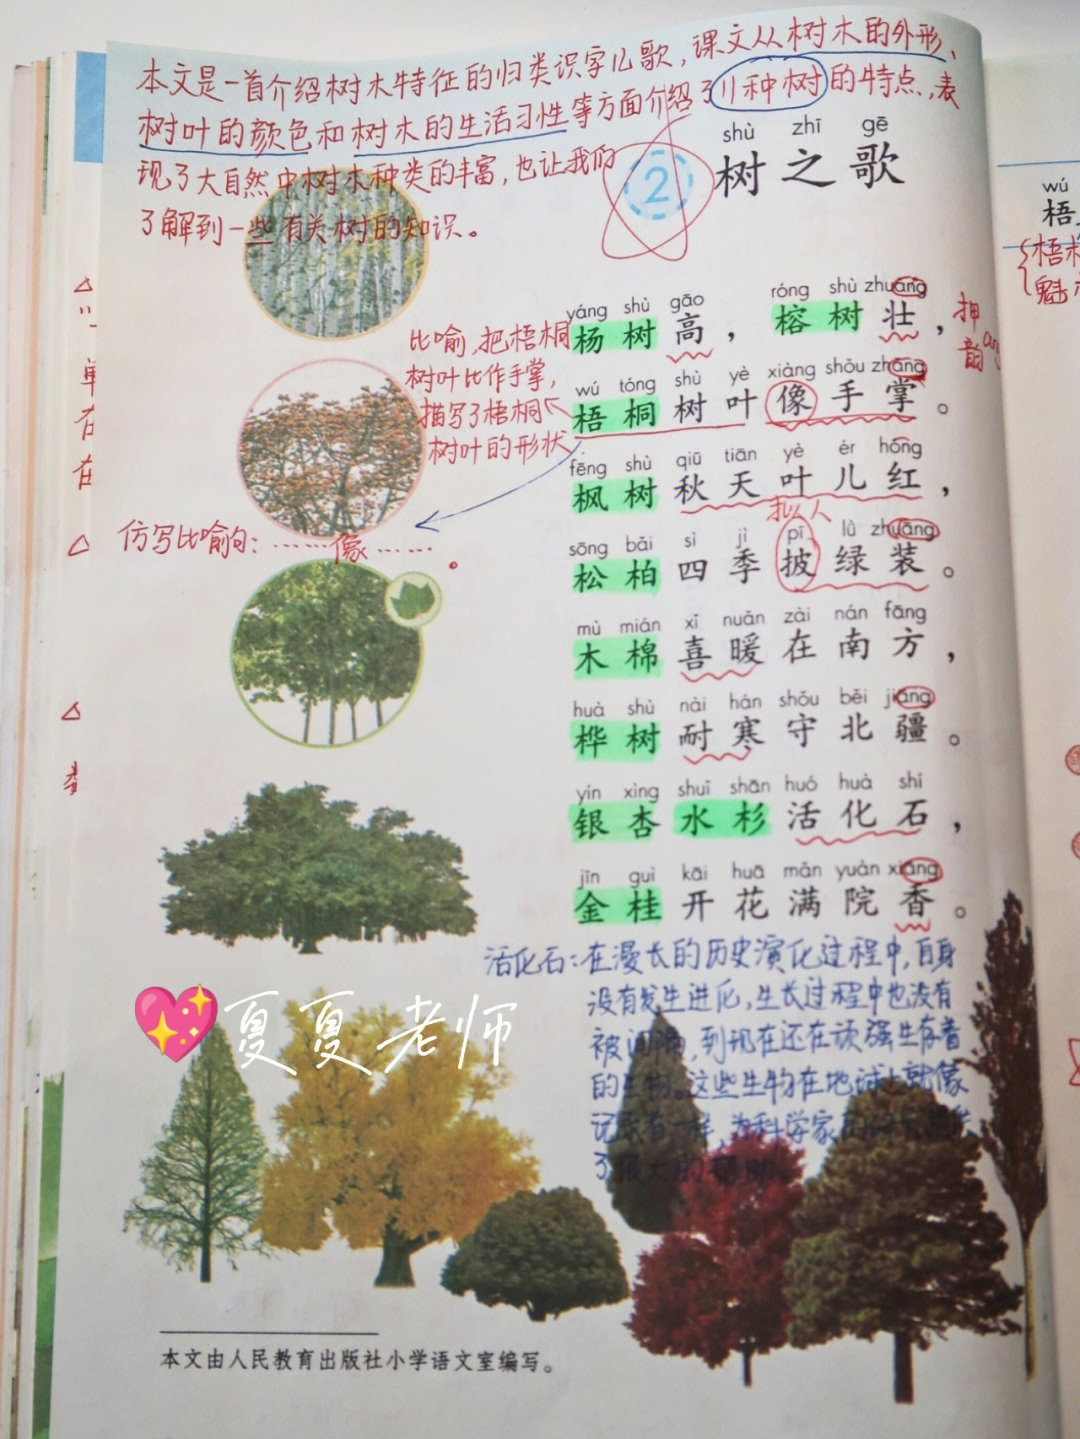 本文是一首介绍树木特征的归类识字儿歌,课文从树木的外形、
树叶的颜色和树木的生活习性等方面介绍了11种树的特点,表
现了大自然中树木种类的丰富,也让我们
了解到一些有关树的知识。
shù zhī gē
2 树之歌
wú
梧
梧
魁
yáng shù gāo róng shù zhuàng
杨树高，榕树壮，
押
韵
ang
比喻,把梧桐
树叶比作手掌,
描写了梧桐
树叶的形状
wú tóng shù yè xiàng shǒu zhǎng
梧桐树叶像手掌。
fēng shù qiū tiān yè ér hóng
枫树秋天叶儿红，
拟人
仿写比喻句:……像……。
sōng bǎi sì jì pī lǜ zhuāng
松柏四季披绿装。
mù mián xǐ nuǎn zài nán fāng
木棉喜暖在南方，
huà shù nài hán shǒu běi jiāng
桦树耐寒守北疆。
yín xìng shuǐ shān huó huà shí
银杏水杉活化石，
jīn guì kāi huā mǎn yuàn xiāng
金桂开花满院香。
活化石:在漫长的历史演化过程中,自身
没有发生进化,生长过程中也没有
被,到现在还在顽强生存着
的生物。这些生物在地球上就像
记录者一样,为科学家
了很大的帮助
夏夏老师
单
在
在
本文由人民教育出版社小学语文室编写。